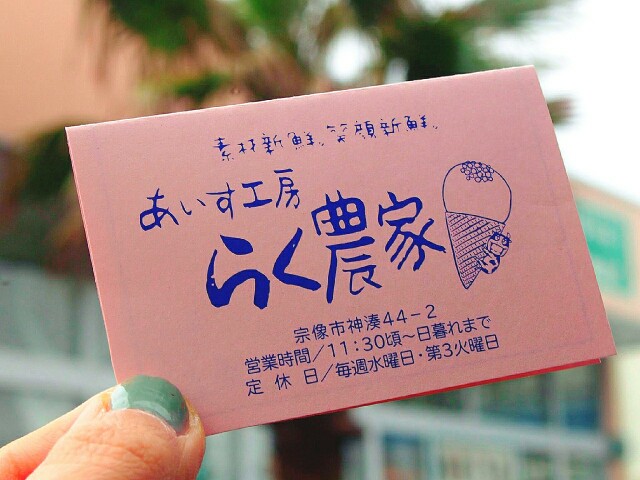 素材新鮮。笑顔新鮮。
あいす工房
らく農家
宗像市神湊44-2
営業時間/11:30頃~日暮れまで
定休日/毎週水曜日・第3火曜日